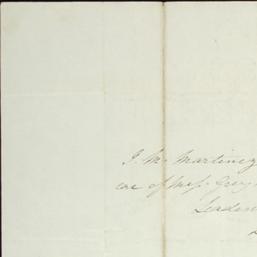 J. M. Martinez
care of Mess. Grey
Leaden